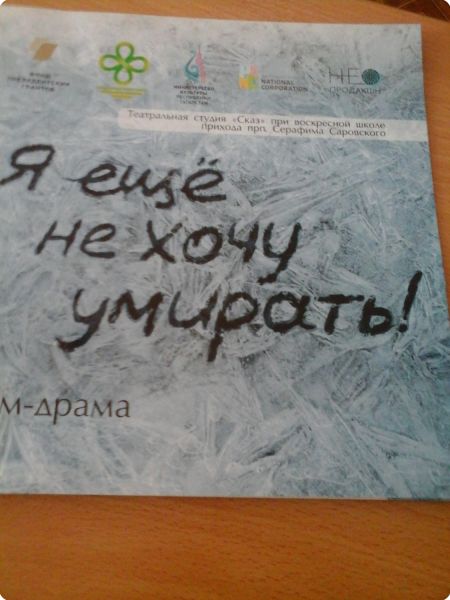 ФОНД
ПРЕЗИДЕНТСКИХ
ГРАНТОВ
МИНИСТЕРСТВО
КУЛЬТУРЫ
NATIONAL
CORPORATION
НЕО
ПРОДАКШН
Театральная студия «Сказ» при воскресной школе
Прихода прп. Серафима Саровского
Я ещё
не хочу
умирать!
м-драма